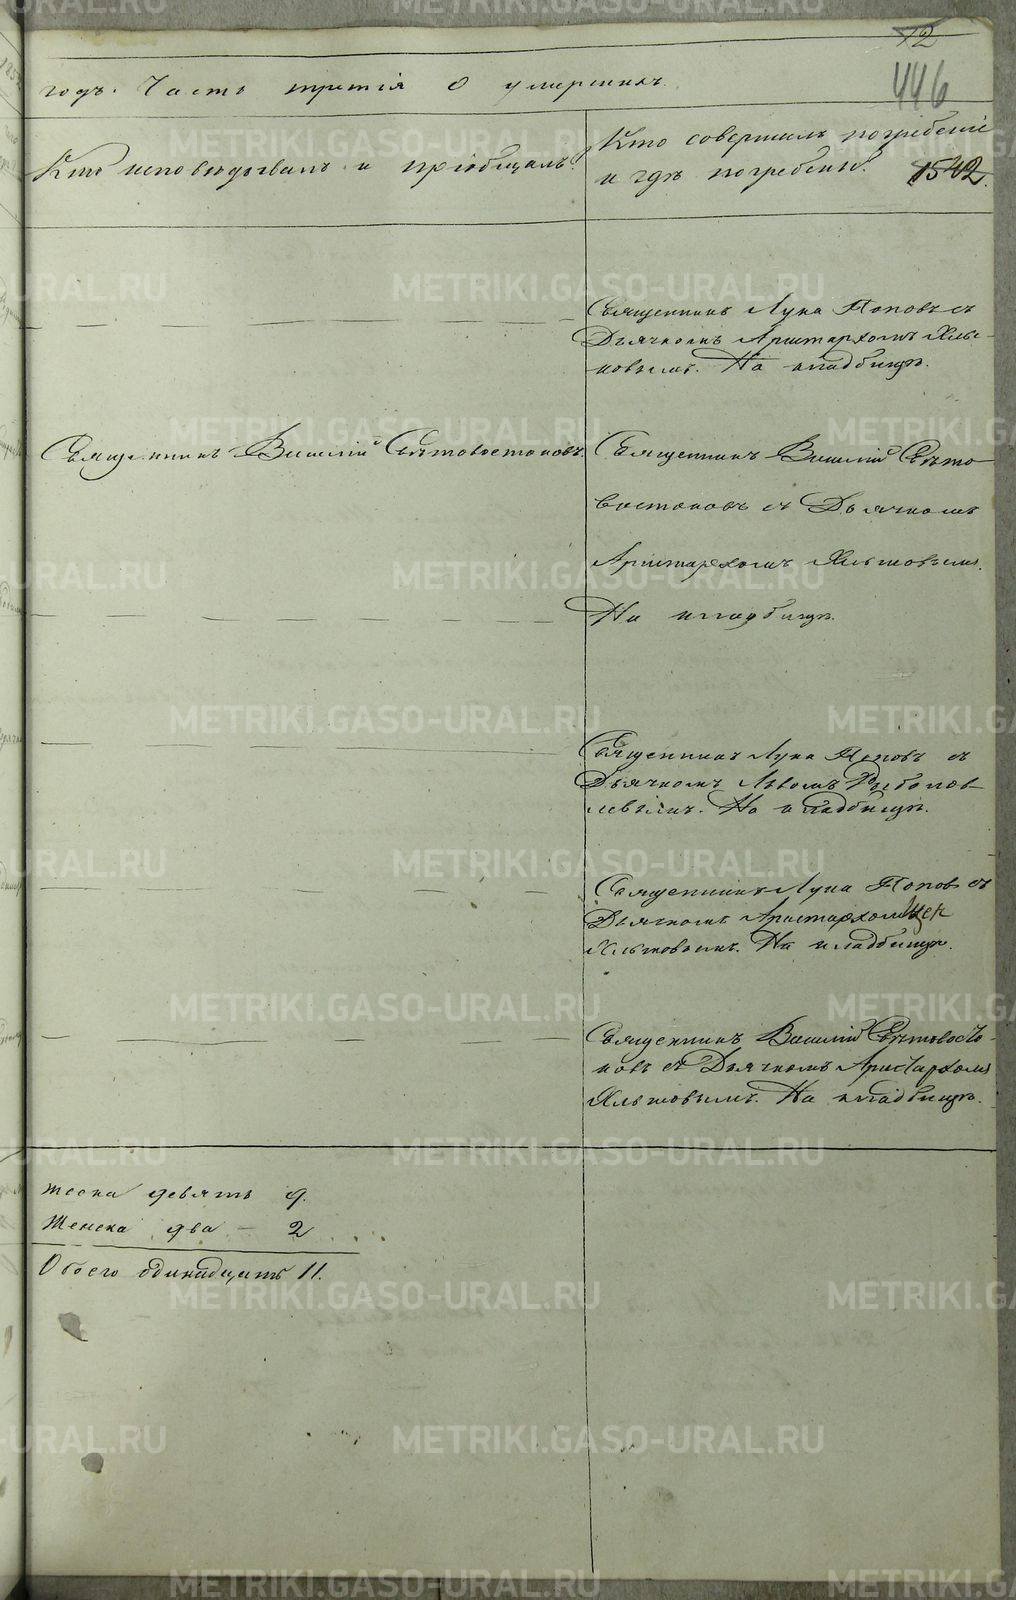 12
446
годъ. Часть третія о умершихъ.
Кто исповѣдывалъ и пріобщалъ?
Кто совершилъ погребеніе
и гдѣ погребены?
1542.
Священникъ Лука Поповъ съ
Дьячкомъ Аристархомъ
На кладбищѣ.
Священникъ Василій Свѣтовостоковъ.
Священникъ Василій Свѣто
востоковъ съ Дьячкомъ
Аристархомъ
На кладбищѣ.
Священникъ Лука Поповъ съ
Дьячкомъ
На кладбищѣ.
Священникъ Лука Поповъ съ
Дьячкомъ Аристархомъ
На кладбищѣ.
Священникъ Василій Свѣтовосто-
ковъ съ Дьячкомъ Аристархомъ
На кладбищѣ.
девять 9.
Женска два — 2
Обоего одинадцать 11.
METRIKI.GASO-URAL.RU